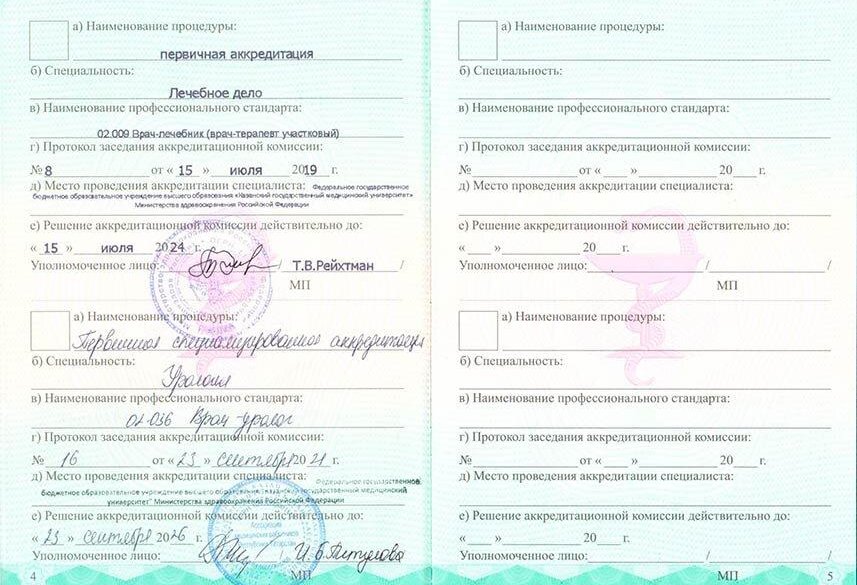 а) Наименование процедуры:
первичная аккредитация
б) Специальность:
Лечебное дело
в) Наименование профессионального стандарта:
02.009 Врач-лечебник (врач-терапевт участковый)
г) Протокол заседания аккредитационной комиссии:
№ 8 от « 15 » июля 2019 г.
д) Место проведения аккредитации специалиста: Федеральное государственное
бюджетное образовательное учреждение высшего образования «Казанский государственный медицинский университет»
Министерства здравоохранения Российской Федерации
е) Решение аккредитационной комиссии действительно до:
« 15 » июля 2024 г.
Уполномоченное лицо: / Т.В.Рейхтман /
МП
а) Наименование процедуры:
Первичная специализированная аккредитация
б) Специальность:
Урология
в) Наименование профессионального стандарта:
02.036 Врач-уролог
г) Протокол заседания аккредитационной комиссии:
№ 16 от « 23 » сентября 2021 г.
д) Место проведения аккредитации специалиста: Федеральное государственное
бюджетное образовательное учреждение высшего образования "Казанский государственный медицинский
университет" Министерства здравоохранения Российской Федерации
е) Решение аккредитационной комиссии действительно до:
« 23 » сентября 2026 г.
Уполномоченное лицо: /
МП
4
а) Наименование процедуры:
б) Специальность:
в) Наименование профессионального стандарта:
г) Протокол заседания аккредитационной комиссии:
№ от « » 20 г.
д) Место проведения аккредитации специалиста:
е) Решение аккредитационной комиссии действительно до:
« » 20 г.
Уполномоченное лицо: / /
МП
а) Наименование процедуры:
б) Специальность:
в) Наименование профессионального стандарта:
г) Протокол заседания аккредитационной комиссии:
№ от « » 20 г.
д) Место проведения аккредитации специалиста:
е) Решение аккредитационной комиссии действительно до:
« » 20 г.
Уполномоченное лицо: / /
МП
5